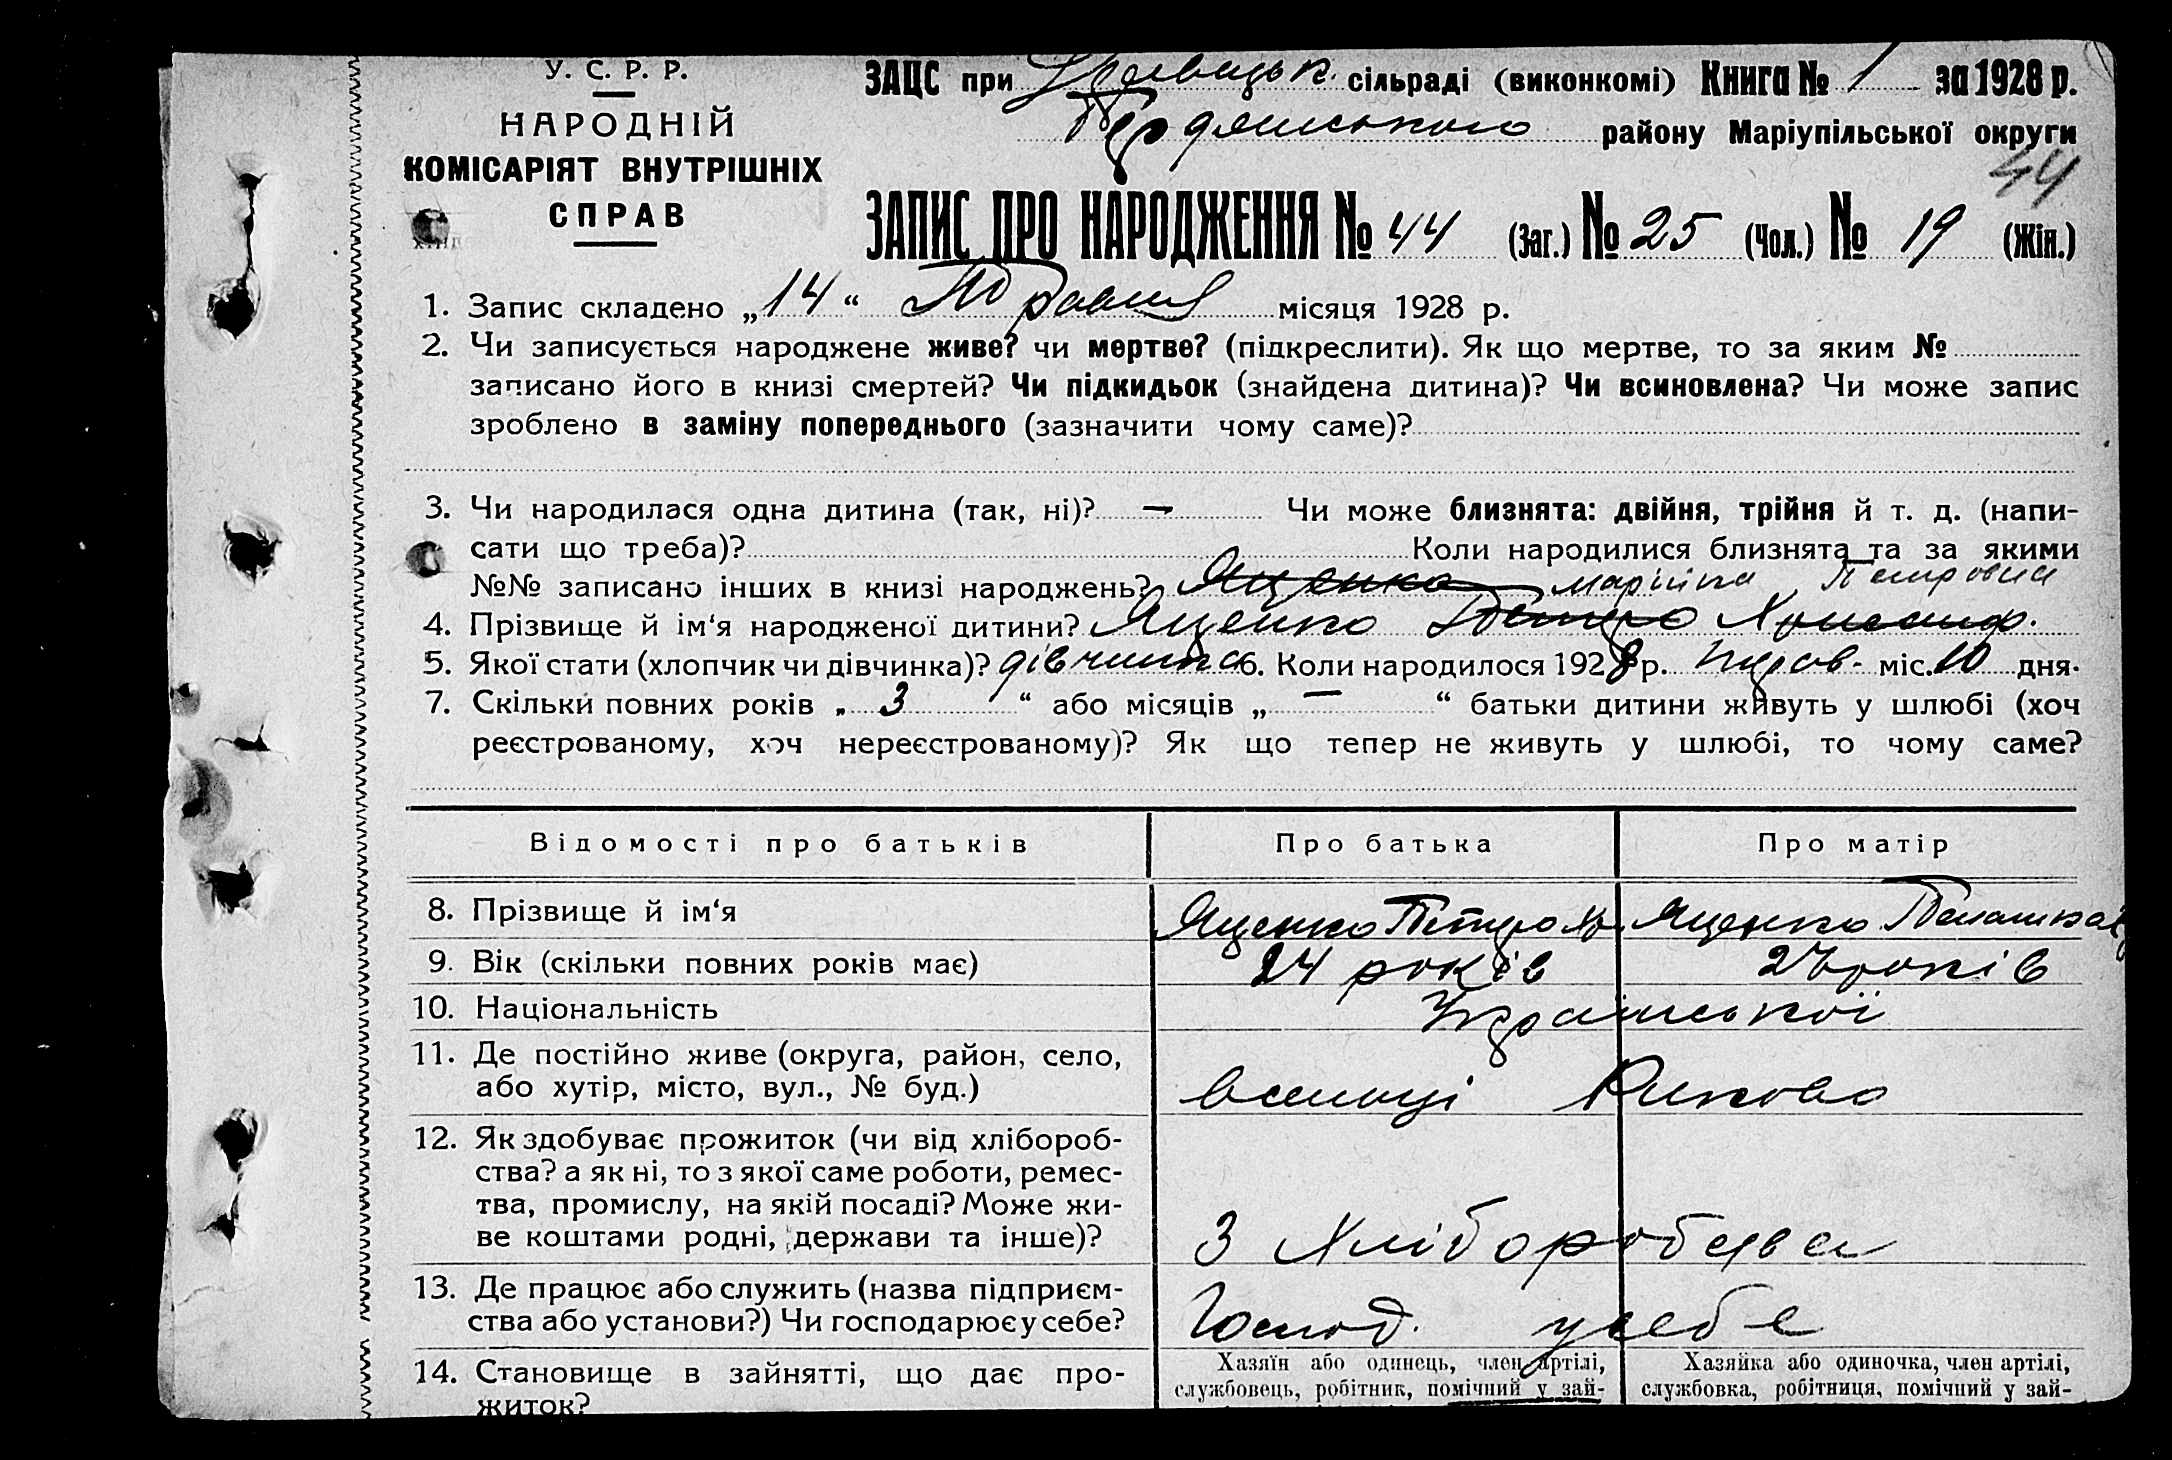 У. С. Р. Р.
НАРОДНІЙ
КОМІСАРІЯТ ВНУТРІШНІХ
СПРАВ
ЗАЦС при сільраді (виконкомі) Книга № 1 за 1928 р.
Бердянського району Маріупільської округи
44
ЗАПИС ПРО НАРОДЖЕННЯ № 44 (Заг.) № 25 (Чол.) № 19 (Жін.)
1. Запис складено „14“ Травня місяця 1928 р.
2. Чи записується народжене живе? чи мертве? (підкреслити). Як що мертве, то за яким №
записано його в книзі смертей? Чи підкидьок (знайдена дитина)? Чи всиновлена? Чи може запис
зроблено в заміну попереднього (зазначити чому саме)?
3. Чи народилася одна дитина (так, ні)? — Чи може близнята: двійня, трійня й т. д. (напи-
сати що треба)? Коли народилися близнята та за якими
№№ записано інших в книзі народжень? Яценко Марійка Петровна
4. Прізвище й ім‘я народженої дитини? Яценко Петро
5. Якої стати (хлопчик чи дівчинка)? дівчинка 6. Коли народилося 1928 р. міс. 10 дня.
7. Скільки повних років „ 3 “ або місяців „ — “ батьки дитини живуть у шлюбі (хоч
реєстрованому, хоч нереєстрованому)? Як що тепер не живуть у шлюбі, то чому саме?
Відомості про батьків Про батька Про матір
8. Прізвище й ім‘я Яценко Петро Яценко Палашка
9. Вік (скільки повних років має) 24 років років
10. Національність Української
11. Де постійно живе (округа, район, село,
або хутір, місто, вул., № буд.) Риково
12. Як здобуває прожиток (чи від хлібороб-
ства? а як ні, то з якої саме роботи, ремес-
тва, промислу, на якій посаді? Може жи-
ве коштами родні, держави та інше)? З Хліборобства
13. Де працює або служить (назва підприєм-
ства або установи?) Чи господарює у себе? Господ. у себе
14. Становище в зайнятті, що дає про-
житок?
Хазяїн або одинець, член артілі,
службовець, робітник, помічний у зай-
Хазяйка або одиночка, член артілі,
службовка, робітниця, помічний у зай-